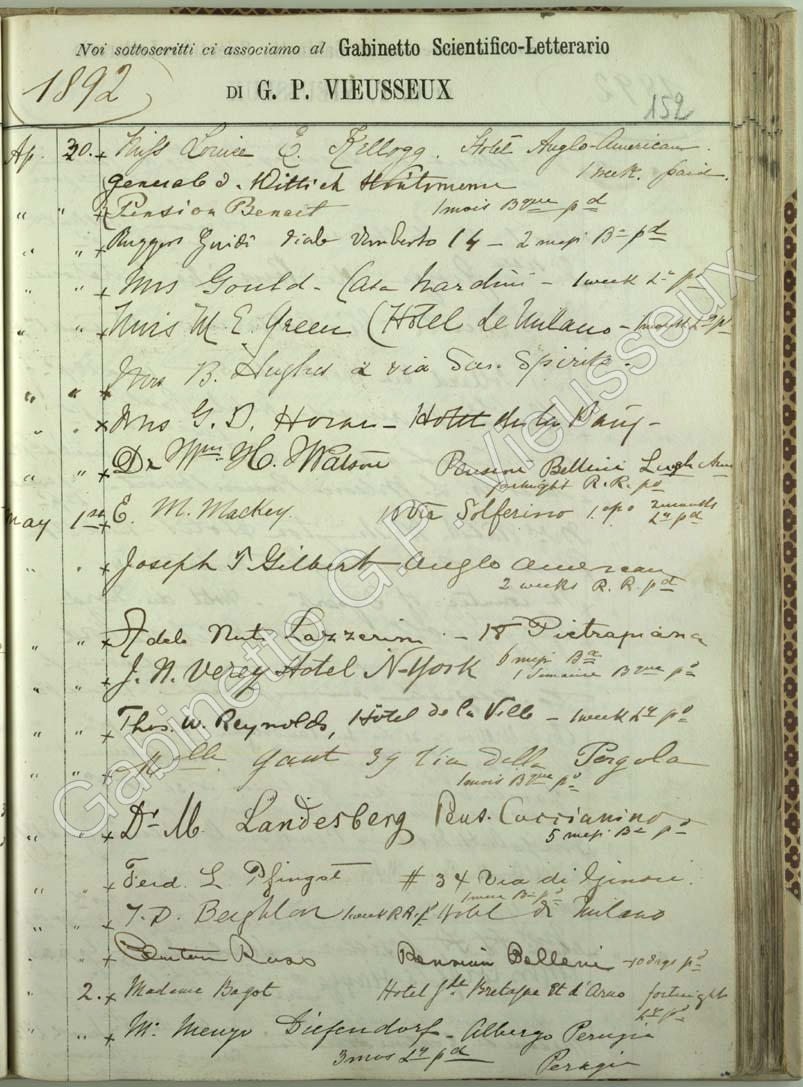 Noi sottoscritti ci associamo al Gabinetto Scientifico-Letterario
1892
DI G. P. VIEUSSEUX
152
Ap. 30. Miss Louise E. Kellogg. Hotel Anglo-American.
1 week. paid.
General
Pension Benoit 1 mois Bque pd
Ruggero Guidi Viale Umberto 14 – 2 mesi Bn pd
Mrs Gould – Casa Nardini – 1 week Ly pd
Miss M E. Green (Hotel de Milano –
Mrs B. Hughes 2 via San. Spirito.
Mrs G. D. – Hotel de la Paix –
Dr Wm H. Watson Pension Bellini Lungh Arno
fortnight R. R. pd
May 1st E. M. Mackey. 10 Via Solferino 1. opo 2 months
Ly pd
Joseph T Gilbert Anglo American
2 weeks R. R. pd
Adele Nuti Lazzerini – 18 Pietrapiana
6 mesi Ba
J. N. Verey Hotel N-York 1 Semaine Bque pd
Thos. W. Reynolds, Hôtel de la Ville – 1 week Ly pd
Mlle. Gaut 39 Via della Pergola
1 mois Bque pd
Dr M. Landesberg Pens.
5 mesi Ba pd
Ferd. L. Pfingst # 34 Via di Ginori.
J. D. 1 week R.R. pd Hotel di Milano
Pension Bellini – 10 days pd
2. Madame Bagot Hotel Gde Bretagne et d'Arno fortnight
Ly pd
Mr. Diefendorf – Albergo Perugia
3 mos Ly pd Perugia
Gabinetto G.P. Vieusseux